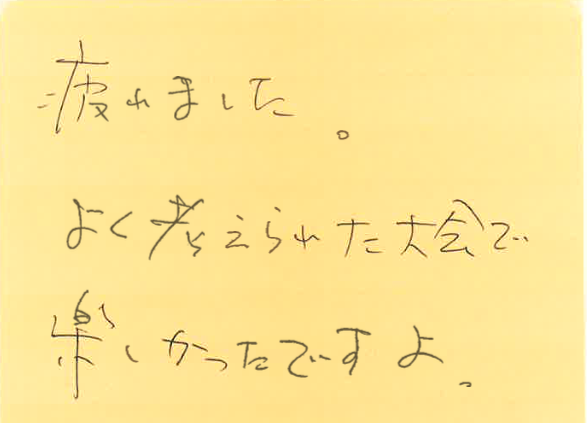 疲れました。
よく考えられた大会で
楽しかったですよ。